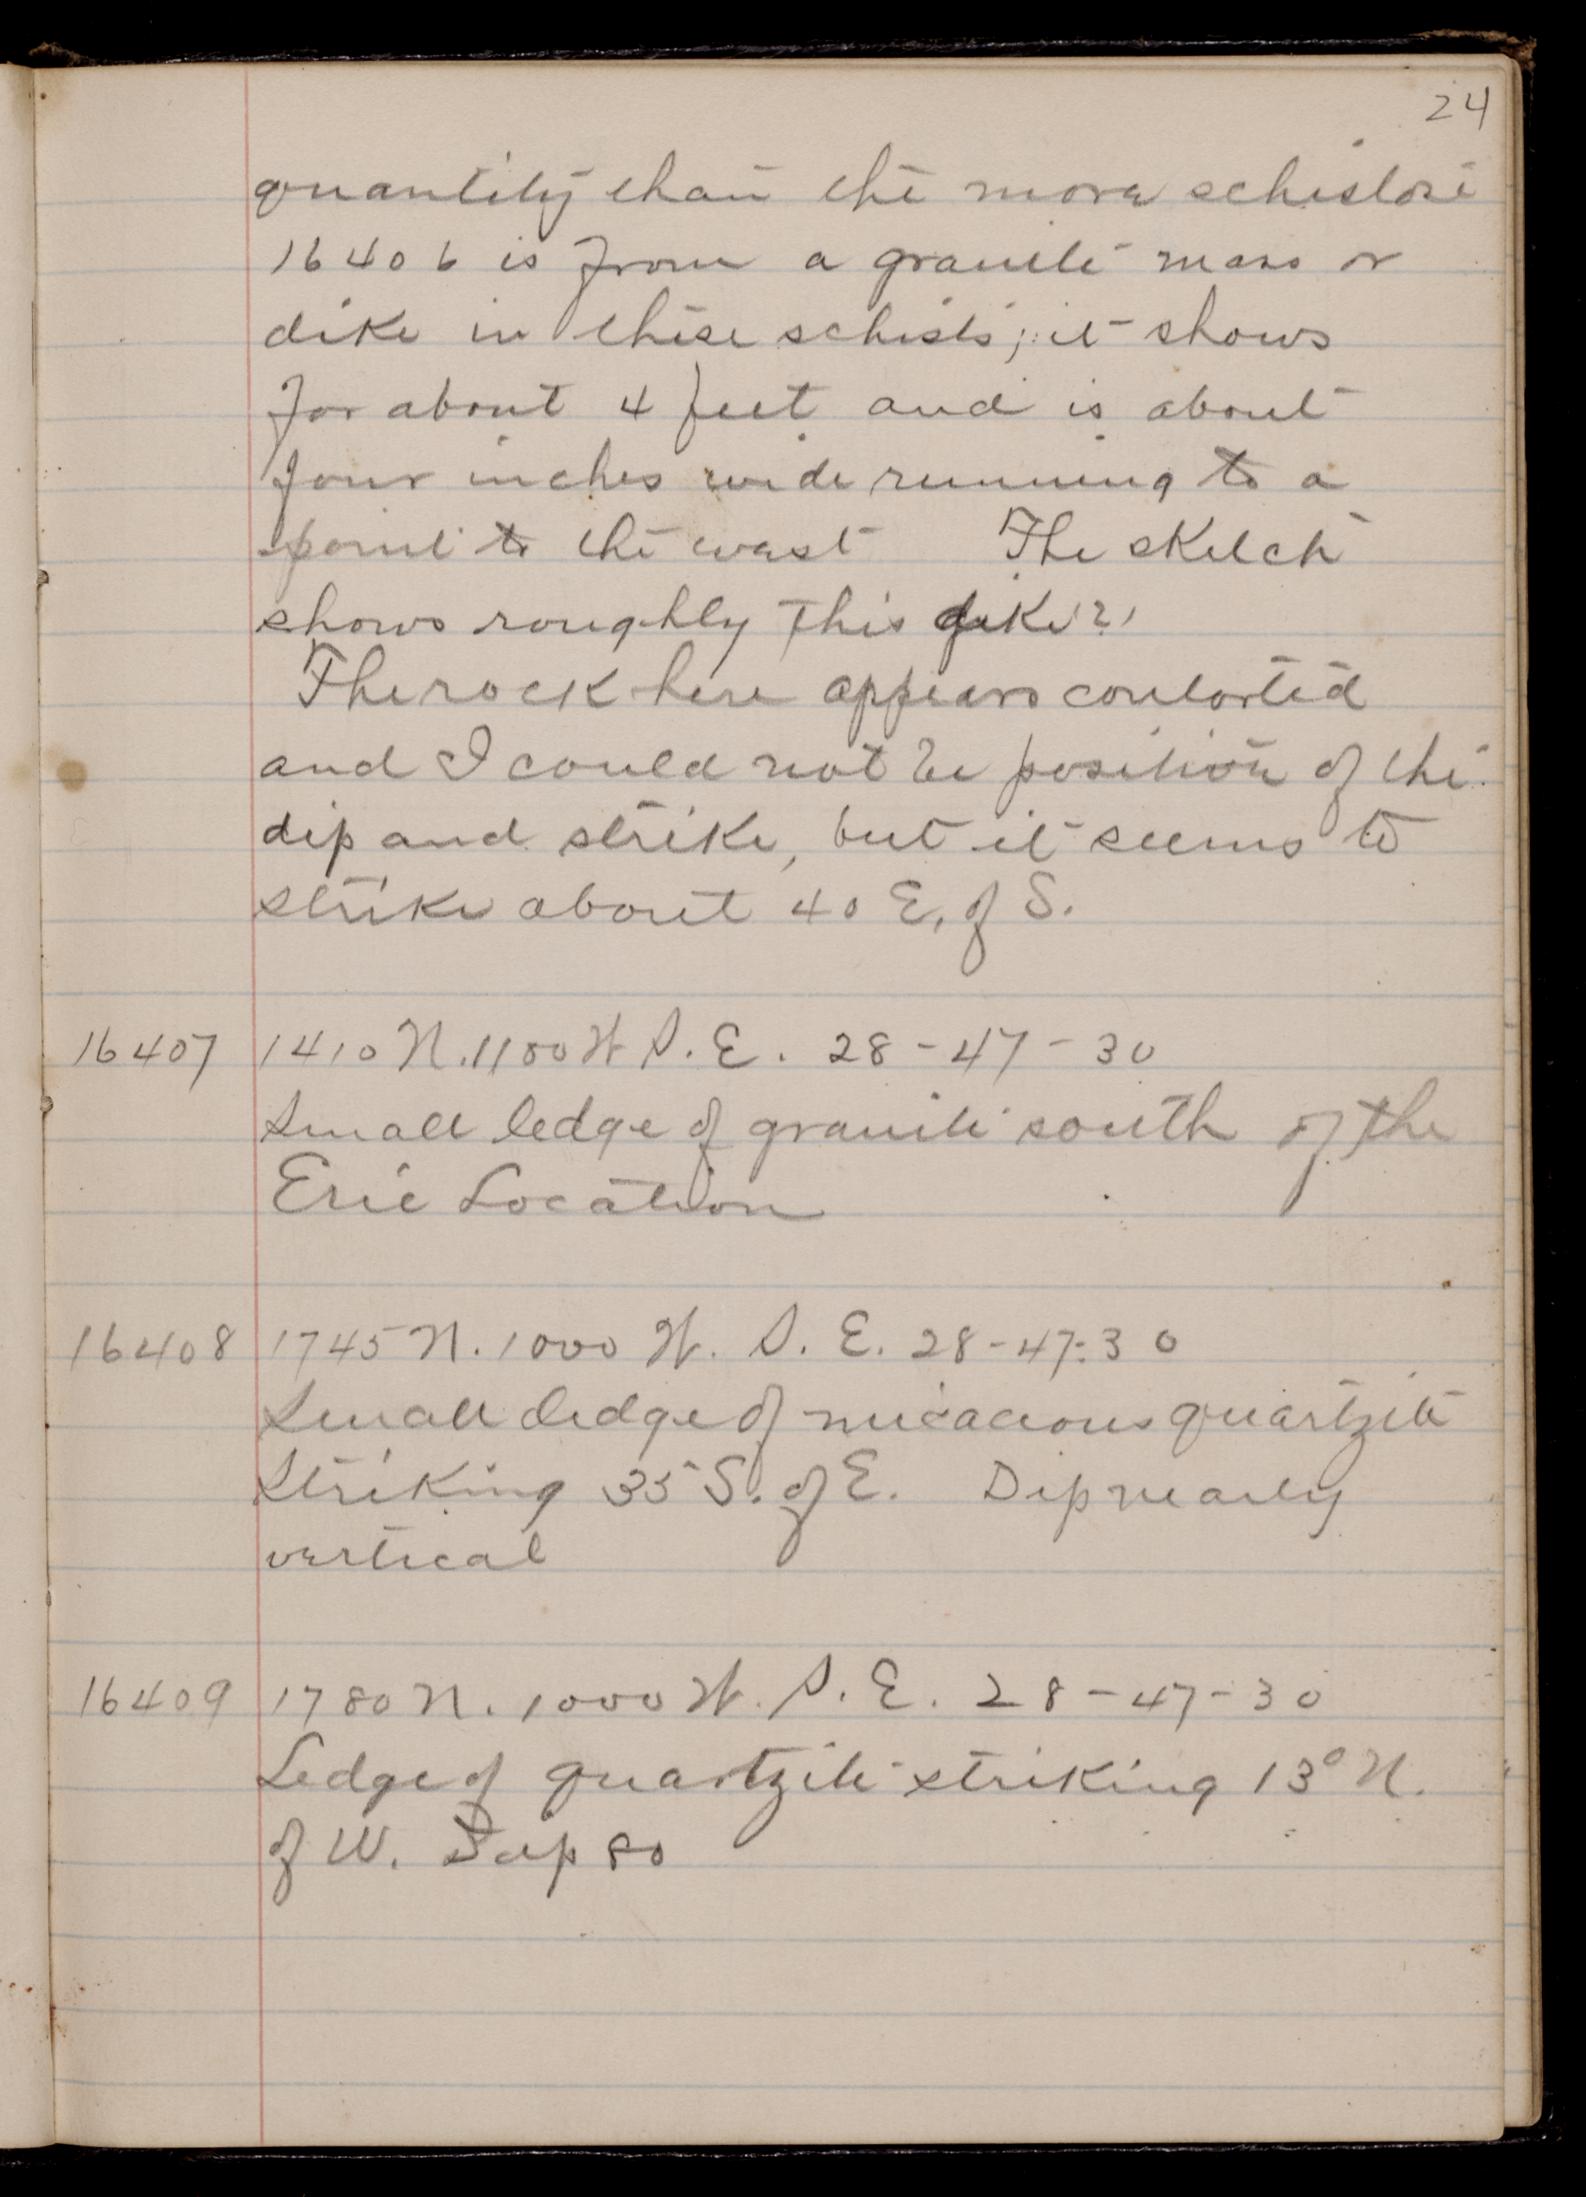 24
quantity than the more schistose
16406 is from a granite mass or
dike in these schists; it shows
for about 4 feet and is about
four inches wide running to a
point to the west The sketch
shows roughly this dike(?)
The rock here appears contorted
and I could not be position of the
dip and strike, but it seems to
strike about 40 E. of S.
16407 1410 N. 1100 W S. E. 28-47-30
Small ledge of granite south of the
Erie Location
16408 1745 N. 1000 W. S. E. 28-47-30
Small ledge of micacious quartzite
Striking 35 S. of E. Dip nearly
vertical
16409 1780 N. 1000 W. S. E. 28-47-30
Ledge of quartzite striking 13° N.
of W. Dip 80